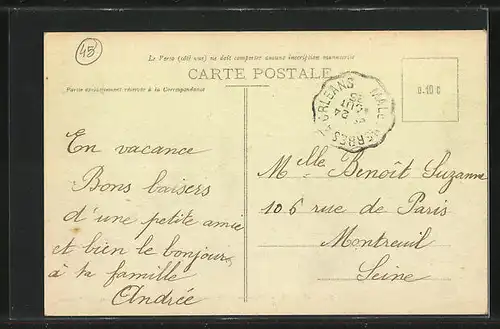 45
Le Verso (côté vue) ne doit comporter aucune inscription manuscrite
CARTE POSTALE
Partie exclusivement réservée à la Correspondance
MALESHERBES A ORLEANS
24
AOUT
15
0.10 c
En vacance
Bons baisers
d'une petite amie
et bien le bonjour
à ta famille
Andrée
Melle Benoît Suzanne
106 rue de Paris
Montreuil
Seine